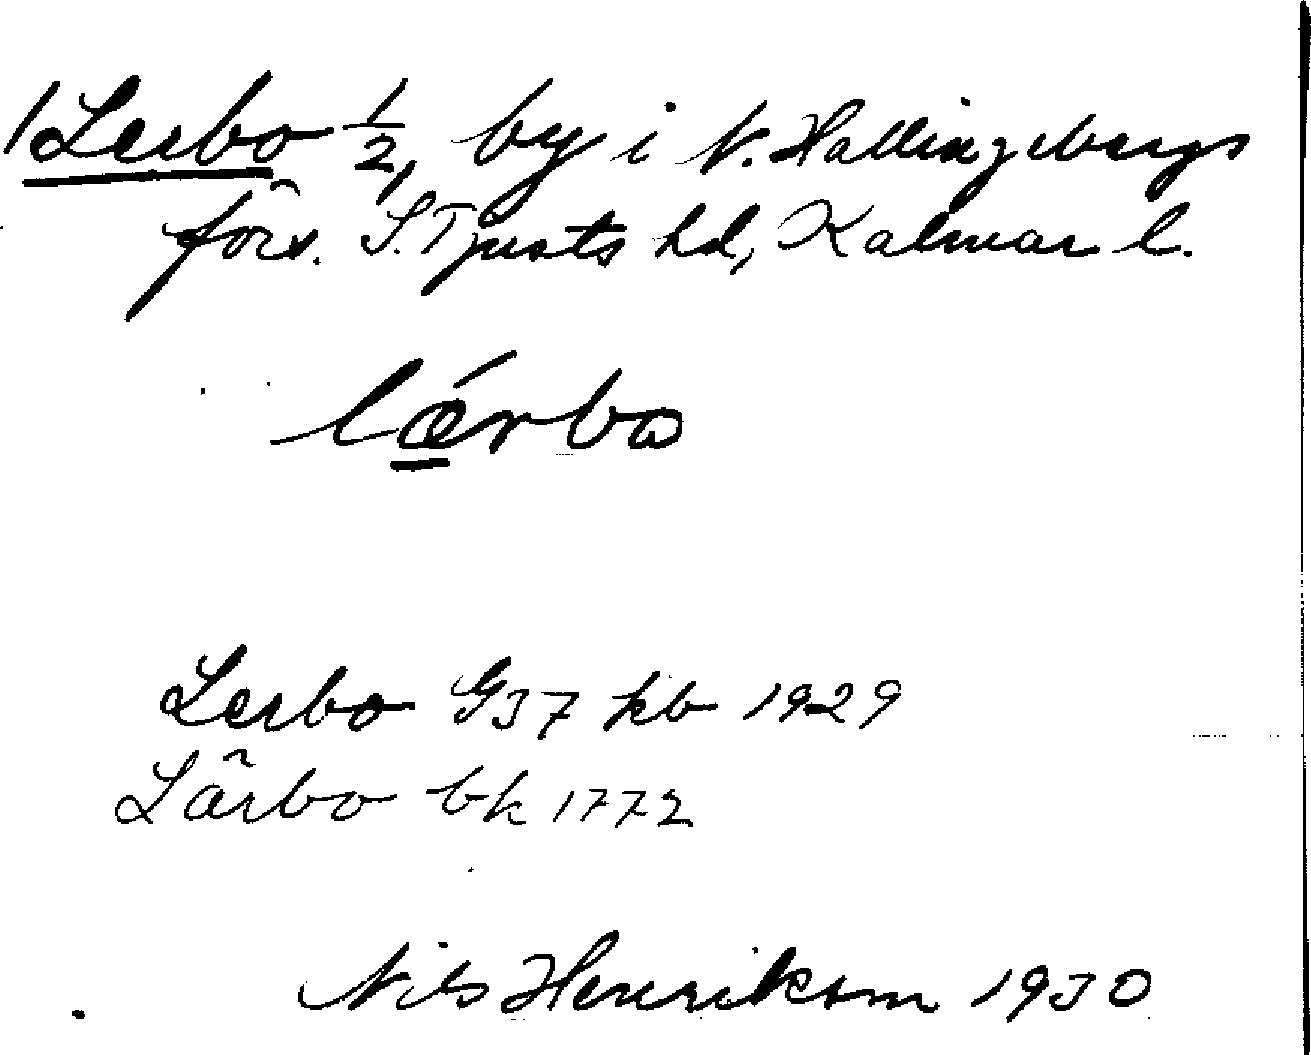 1 Lerbo 1/2, by i V. Hallingebergs
förs. S. Tjusts hd, Kalmar l.
lǽrbo
Lerbo GJ7 kb 1929
Lärbo bk 1772
Nils Henrikson 1930